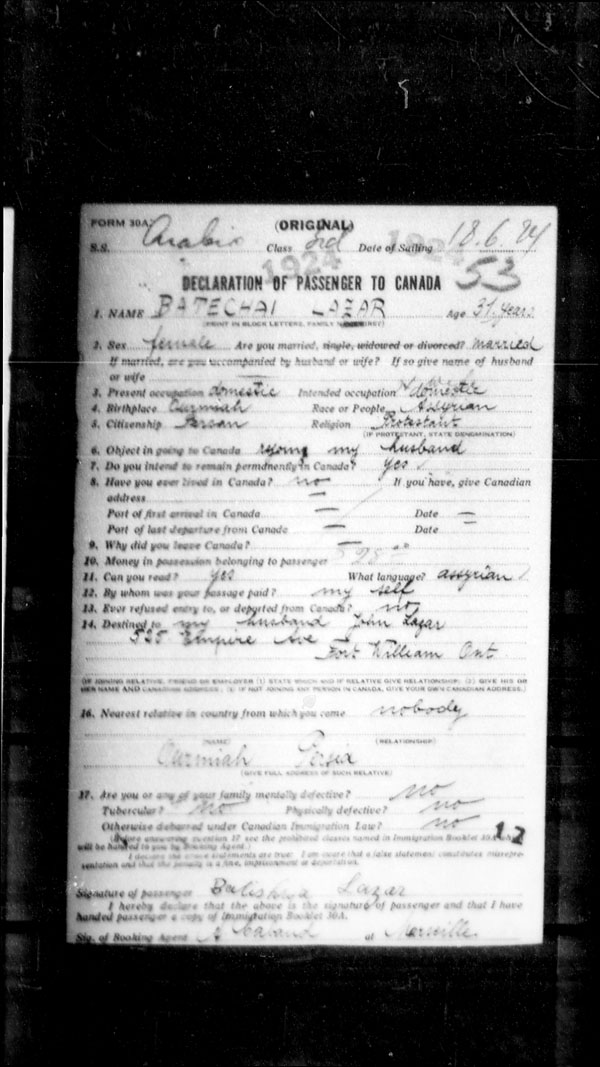 FORM 30A (ORIGINAL)
S.S. Arabic Class 3rd Date of Sailing 18.6.24
1924 1924
DECLARATION OF PASSENGER TO CANADA 53
1. NAME BATECHAI LAZAR Age 31 years
(PRINT IN BLOCK LETTERS, FAMILY NAME FIRST)
2. Sex female Are you married, single, widowed or divorced? married
If married, are you accompanied by husband or wife? If so give name of husband
or wife
3. Present occupation domestic Intended occupation domestic
4. Birthplace Ourmiah Race or People Assyrian
5. Citizenship Persan Religion Protestant
(IF PROTESTANT, STATE DENOMINATION)
6. Object in going to Canada my husband
7. Do you intend to remain permanently in Canada? yes
8. Have you ever lived in Canada? no If you have, give Canadian
address —
Port of first arrival in Canada — Date —
Port of last departure from Canada — Date
9. Why did you leave Canada?
10. Money in possession belonging to passenger
11. Can you read? yes What language? assyrian
12. By whom was your passage paid? my self
13. Ever refused entry to, or deported from Canada? no
14. Destined to my husband John Lazar
525 Empire Ave
Fort William Ont
(IF JOINING RELATIVE, FRIEND OR EMPLOYER (1) STATE WHICH AND IF RELATIVE GIVE RELATIONSHIP: (2) GIVE HIS OR
HER NAME AND CANADIAN ADDRESS: (3) IF NOT JOINING ANY PERSON IN CANADA, GIVE YOUR OWN CANADIAN ADDRESS.)
16. Nearest relative in country from which you came nobody
(NAME) (RELATIONSHIP)
Ourmiah Persia
(GIVE FULL ADDRESS OF SUCH RELATIVE)
17. Are you or any of your family mentally defective? no
Tubercular? no Physically defective? no
Otherwise debarred under Canadian Immigration Law? no
(Before answering question 17 see the prohibited classes named in Immigration Booklet 30A which
will be handed to you by Booking Agent.)
I declare the above statements are true: I am aware that a false statement constitutes misrepre-
sentation and that the penalty is a fine, imprisonment or deportation.
Signature of passenger Lazar
I hereby declare that the above is the signature of passenger and that I have
handed passenger a copy of Immigration Booklet 30A.
Sig. of Booking Agent at